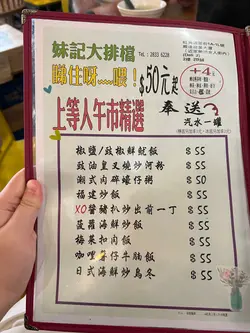 妹記大排檔
TEL: 2833 6228
睇住呀﹏喂!
$50元起
上等人午市精選
+4元
奉送
汽水一罐
椒鹽/豉椒鮮魷飯 $55
豉油皇叉燒炒河粉 $55
潮式肉碎蠔仔粥 $50
福建炒飯 $55
XO醬豬扒炒出前一丁 $55
菠蘿海鮮炒飯 $55
梅菜扣肉飯 $55
咖喱薯仔牛腩飯 $55
日式海鮮炒烏冬 $55